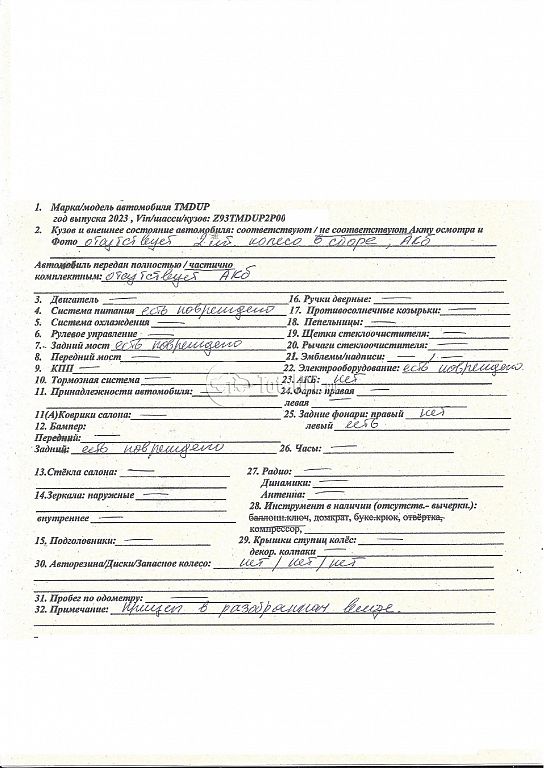 1. Марка/модель автомобиля TMDUP
год выпуска 2023 , Vin/шасси/кузов: Z93TMDUP2P00
2. Кузов и внешнее состояние автомобиля: соответствуют / не соответствуют Акту осмотра и
Фото отсутствует 2 шт. колеса в сборе, АКБ
Автомобиль передан полностью / частично
комплектным: отсутствует АКБ
3. Двигатель — 16. Ручки дверные: —
4. Система питания есть повреждено 17. Противосолнечные козырьки: —
5. Система охлаждения — 18. Пепельницы: —
6. Рулевое управление — 19. Щетки стеклоочистителя: —
7. Задний мост есть повреждено 20. Рычаги стеклоочистителя: —
8. Передний мост — 21. Эмблемы/надписи: — / —
9. КПП — 22. Электрооборудование: есть повреждено
10. Тормозная система — 23. АКБ: нет
11. Принадлежности автомобиля: — 24. Фары: правая —
левая —
11(А)Коврики салона: — 25. Задние фонари: правый нет
12. Бампер: левый есть
Передний: —
Задний: есть повреждено 26. Часы: —
13.Стёкла салона: — 27. Радио: —
Динамики: —
14.Зеркала: наружные — Антенна: —
28. Инструмент в наличии (отсутств.- вычеркн.):
внутреннее — баллонн.ключ, домкрат, букс.крюк, отвёртка,
компрессор,
15. Подголовники: — 29. Крышки ступиц колёс: —
декор. колпаки —
30. Авторезина/Диски/Запасное колесо: нет / нет / нет
31. Пробег по одометру: —
32. Примечание: прицеп в разобранном виде.